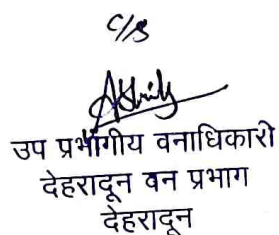 C/S
उप प्रभागीय वनाधिकारी
देहरादून वन प्रभाग
देहरादून